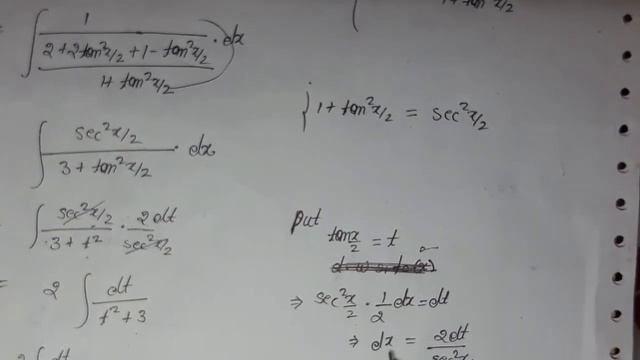 1+tan²x/2
∫ 1/((2+2tan²x/2+1-tan²x/2)/(1+tan²x/2)) · dx
{ 1+tan²x/2 = sec²x/2
∫ sec²x/2 / (3+tan²x/2) · dx
= ∫ sec²x/2 / (3+t²) · 2dt / sec²x/2
put tan x/2 = t
= 2 ∫ dt / (t²+3)
⇒ sec² x/2 · 1/2 dx = dt
⇒ dx = 2dt / sec²x
2 ∫ dt